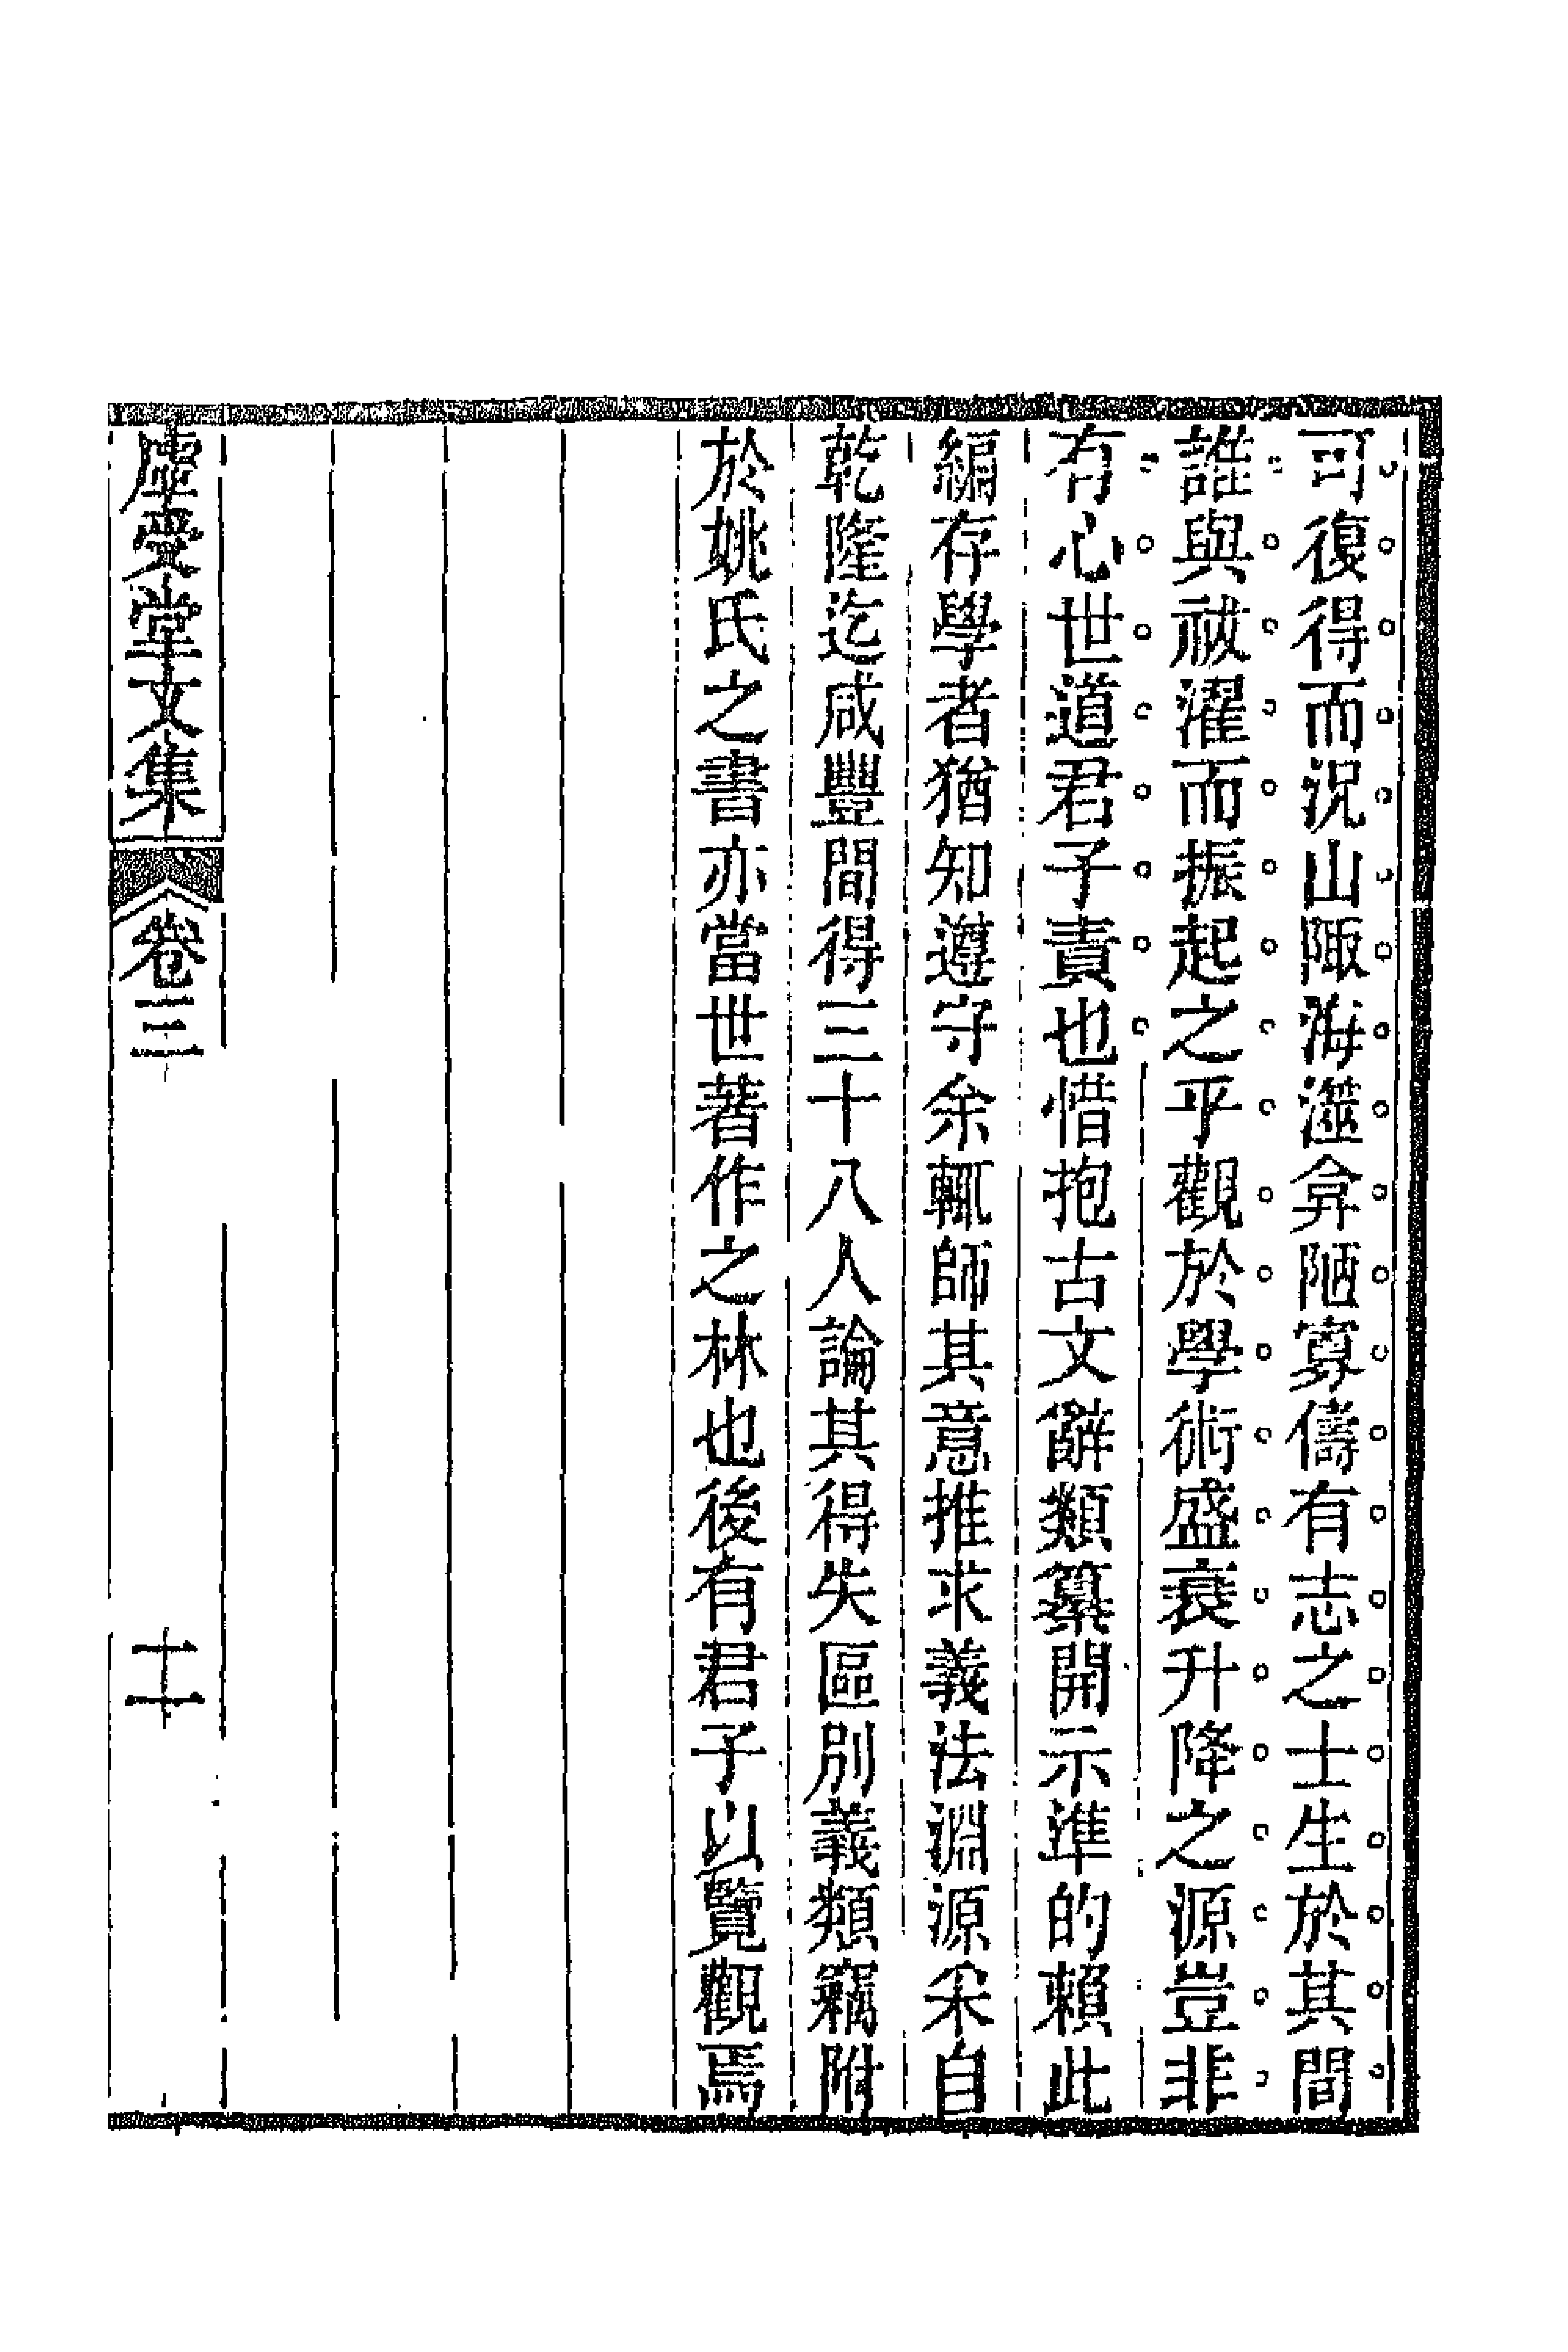 可復得而況山陬海澨弇陋寡儔有志之士生於其間
誰與祓濯而振起之乎觀於學術盛衰升降之源豈非
有心世道君子責也惜抱古文辭類纂開示準的賴此
編存學者猶知遵守余輒師其意推求義法淵源采自
乾隆迄咸豐間得三十八人論其得失區別義類竊附
於姚氏之書亦當世著作之林也後有君子以覽觀焉
虛受堂文集
卷三
十一